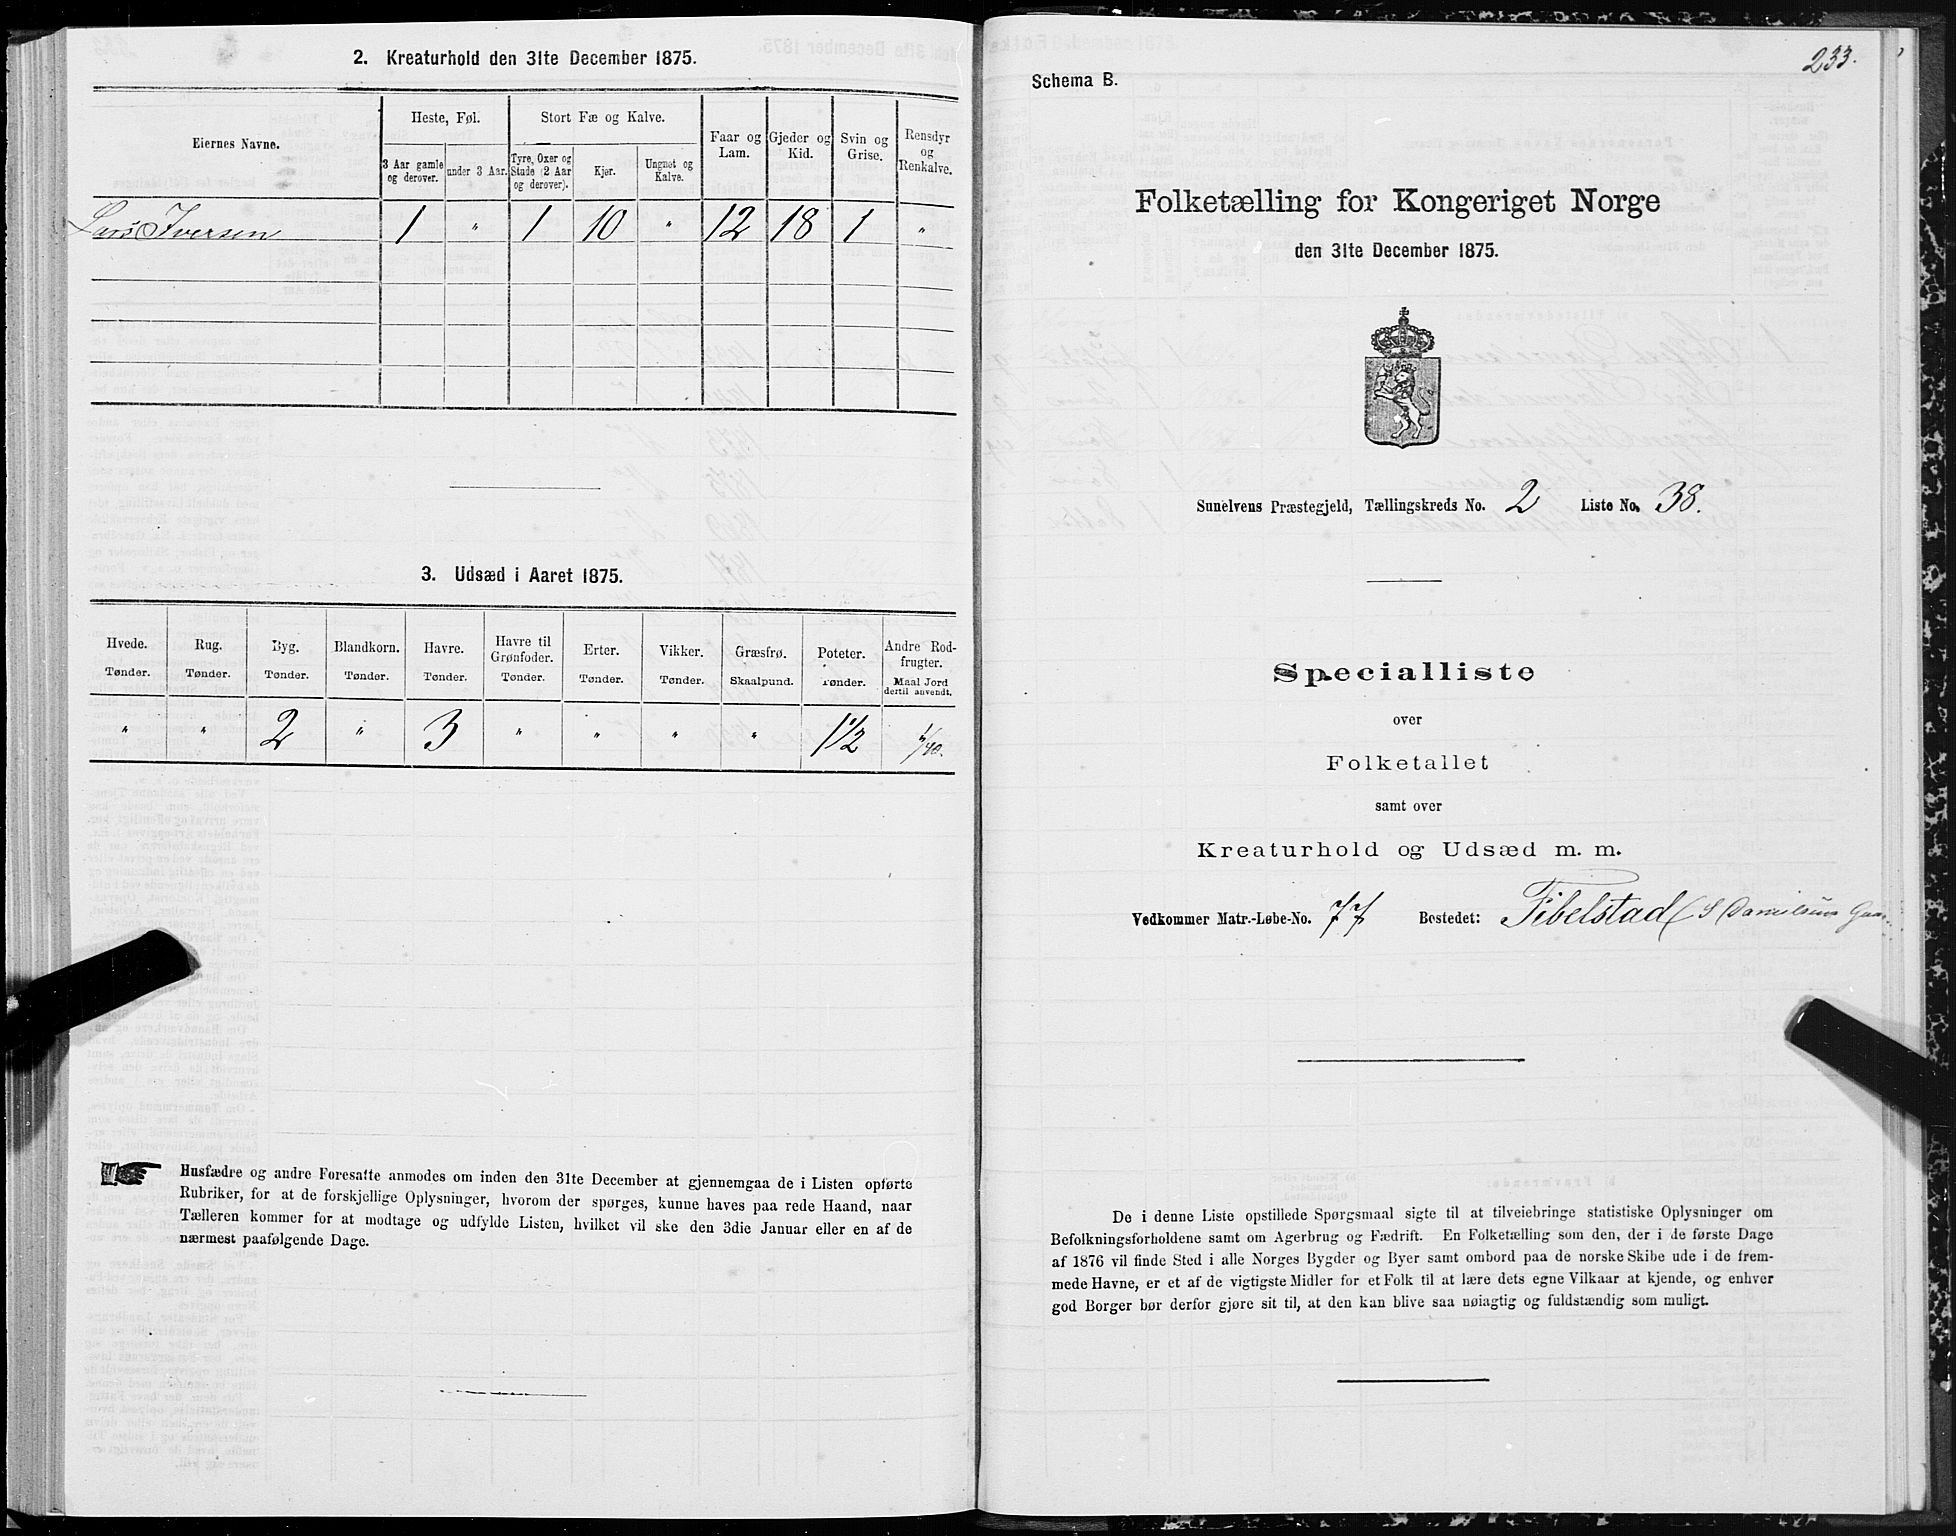 2. Kreaturhold den 31te December 1875.
Eiernes Navne.
Heste, Føl.
Stort Fæ og Kalve.
Faar og Lam.
Gjeder og Kid.
Svin og Grise.
Rensdyr og Renkalve.
3 Aar gamle og derover.
under 3 Aar.
Tyre, Oxer og Stude (2 Aar og derover).
Kjør.
Ungnøt og Kalve.
Lars Iversen 1 " 1 10 " 12 18 1 "
3. Udsæd i Aaret 1875.
Hvede. Rug. Byg. Blandkorn. Havre. Havre til Grønfoder. Erter. Vikker. Græsfrø. Poteter. Andre Rodfrugter.
Tønder. Tønder. Tønder. Tønder. Tønder. Tønder. Tønder. Tønder. Skaalpund. Tønder. Maal Jord dertil anvendt.
" " 2 " 3 " " " " 1½ 1/40.
Husfædre og andre Foresatte anmodes om inden den 31te December at gjennemgaa de i Listen opførte
Rubriker, for at de forskjellige Oplysninger, hvorom der spørges, kunne haves paa rede Haand, naar
Tælleren kommer for at modtage og udfylde Listen, hvilket vil ske den 3die Januar eller en af de
nærmest paafølgende Dage.
233.
Schema B.
Folketælling for Kongeriget Norge
den 31te December 1875.
Sunelvens Præstegjeld, Tællingskreds No. 2 Liste No. 38.
Specialliste
over
Folketallet
samt over
Kreaturhold og Udsæd m. m.
Vedkommer Matr.-Løbe-No. 77 Bostedet: Tibelstad (S Danielsens
De i denne Liste opstillede Spørgsmaal sigte til at tilveiebringe statistiske Oplysninger om
Befolkningsforholdene samt om Agerbrug og Fædrift. En Folketælling som den, der i de første Dage
af 1876 vil finde Sted i alle Norges Bygder og Byer samt ombord paa de norske Skibe ude i de frem-
mede Havne, er et af de vigtigste Midler for et Folk til at lære dets egne Vilkaar at kjende, og enhver
god Borger bør derfor gjøre sit til, at den kan blive saa nøiagtig og fuldstændig som muligt.